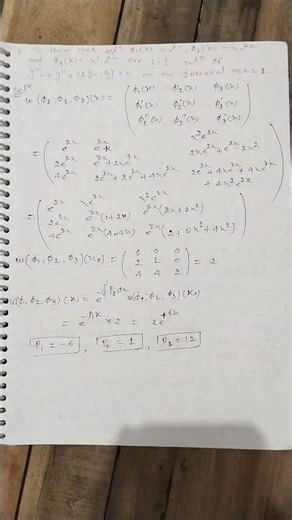 show that sol^n φ₁(x) = e^{2x}, φ₂(x) = xe^{2x}
and φ₃(x) = x² e^{2x} are L.I sol^n of
y''' - 6y'' + 12y' - 8y = 0 on an interval 0≤x≤1.
Sol^n
w(φ₁,φ₂,φ₃)(x) = ( φ₁(x) φ₂(x) φ₃(x)
φ₁'(x) φ₂'(x) φ₃'(x)
φ₁''(x) φ₂''(x) φ₃''(x) )
= ( e^{2x} x²e^{2x}
2e^{2x} e^{2x}+2xe^{2x} 2xe^{2x}+e^{2x}·2x²
4e^{2x} 2e^{2x}+2e^{2x}+4xe^{2x} 2e^{2x}+4xe^{2x}+4xe^{2x}
+4x²e^{2x} )
= ( e^{2x} xe^{2x} x²e^{2x}
2e^{2x} e^{2x}(1+2x) e^{2x}(2x+2x²)
4e^{2x} e^{2x}(4+4x) e^{2x}(2+8x+4x²) )
w(φ₁,φ₂,φ₃)(x₀) = ( 1 0 0
2 1 0
4 4 2 ) = 2
w(φ₁,φ₂,φ₃)(x) = e^{-∫P₁dx} w(φ₁,φ₂,φ₃)(x₀)
= e^{-P₁x} × 2 = 2e^{+6x}
P₁ = -6 , P₀ = 1 , P₂ = 12